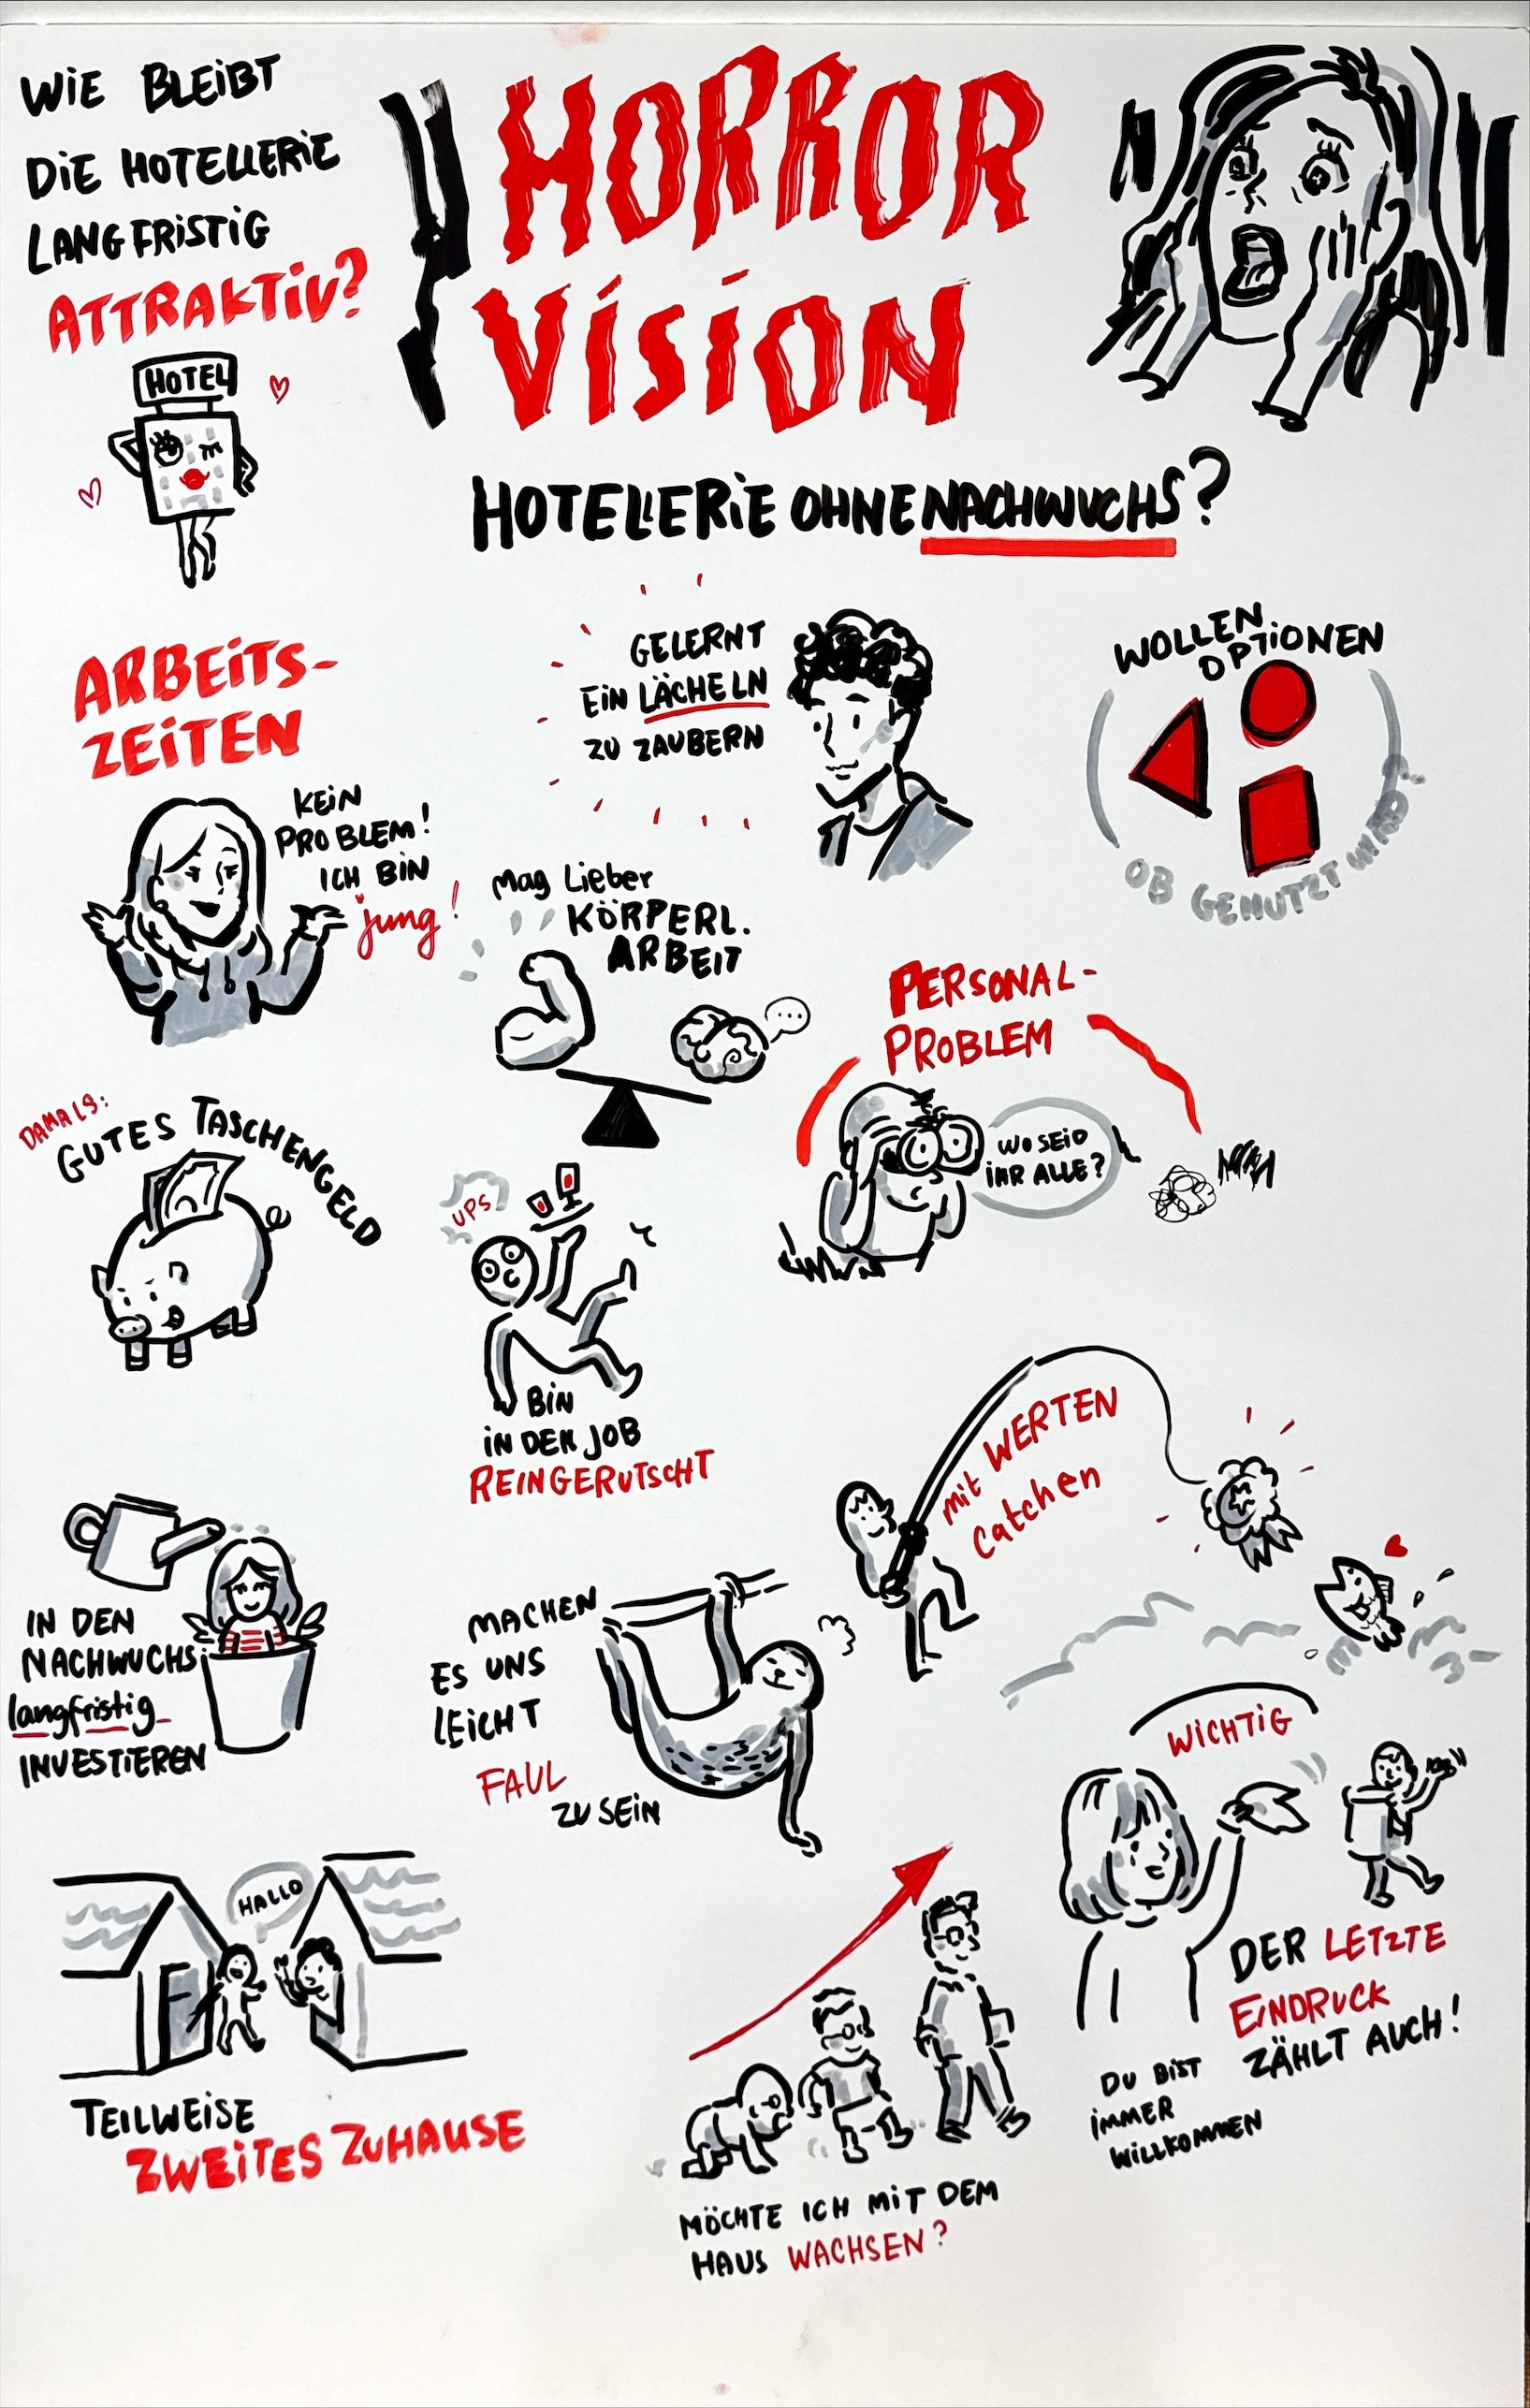 WIE BLEIBT
DIE HOTELLERIE
LANGFRISTIG
ATTRAKTIV?
HOTEL
HORROR
VISION
HOTELLERIE OHNE NACHWUCHS?
ARBEITS-
ZEITEN
KEIN
PROBLEM!
ICH BIN
jung!
GELERNT
EIN LÄCHELN
ZU ZAUBERN
WOLLEN
OPTIONEN
OB GENUTZT WIRD?
Mag Lieber
KÖRPERL.
ARBEIT
...
PERSONAL-
PROBLEM
WO SEID
IHR ALLE?
DAMALS:
GUTES TASCHENGELD
UPS
BIN
IN DEN JOB
REINGERUTSCHT
mit WERTEN
Catchen
IN DEN
NACHWUCHS
langfristig
INVESTIEREN
MACHEN
ES UNS
LEICHT
FAUL
ZU SEIN
WICHTIG
DER LETZTE
EINDRUCK
ZÄHLT AUCH!
DU BIST
IMMER
WILLKOMMEN
HALLO
TEILWEISE
ZWEITES ZUHAUSE
MÖCHTE ICH MIT DEM
HAUS WACHSEN?